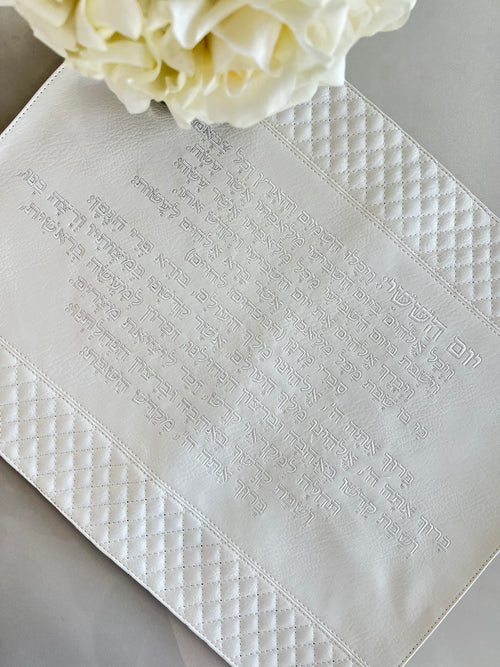 יום הששי: ויכלו השמים והארץ וכל צבאם
ויכל אלהים ביום השביעי מלאכתו אשר עשה,
וישבת ביום השביעי מכל מלאכתו אשר עשה:
ויברך אלהים את יום השביעי ויקדש אתו,
כי בו שבת מכל מלאכתו אשר ברא אלהים לעשות:
סברי מרנן
ברוך אתה ה', אלהינו מלך העולם, בורא פרי הגפן:
ברוך אתה ה', אלהינו מלך העולם, אשר קדשנו במצותיו ורצה בנו,
ושבת קדשו באהבה וברצון הנחילנו זכרון למעשה בראשית,
תחלה למקראי קדש, זכר ליציאת מצרים,
ושבת קדשך באהבה וברצון הנחלתנו:
ברוך אתה ה', מקדש השבת: